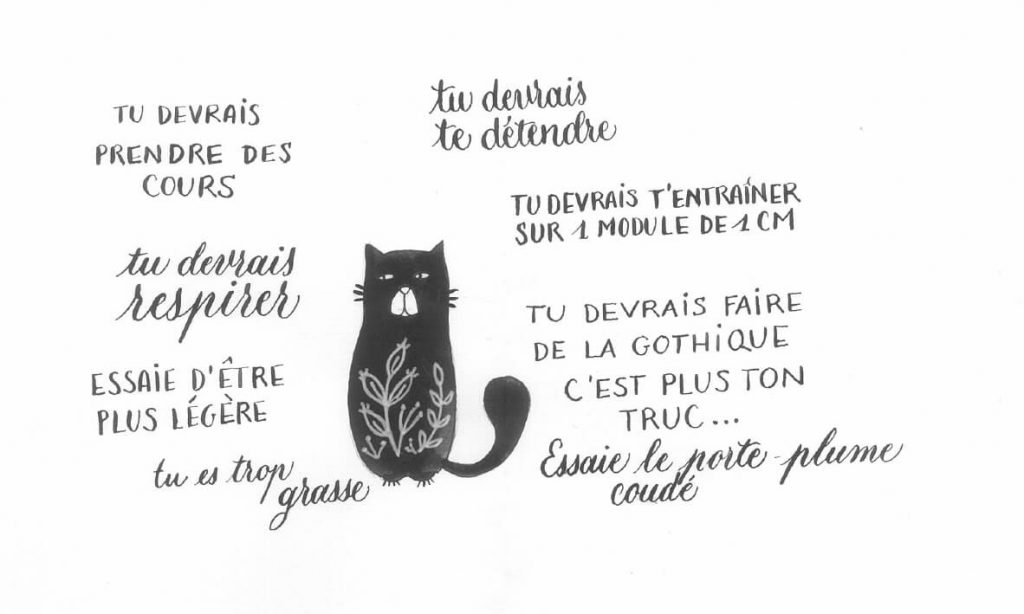 TU DEVRAIS
PRENDRE DES
COURS
tu devrais
te détendre
TU DEVRAIS T'ENTRAÎNER
SUR 1 MODULE DE 1 CM
tu devrais
respirer
TU DEVRAIS FAIRE
DE LA GOTHIQUE
C'EST PLUS TON
TRUC...
ESSAIE D'ÊTRE
PLUS LÉGÈRE
Essaie le porte-plume
coudé
tu es trop
grasse